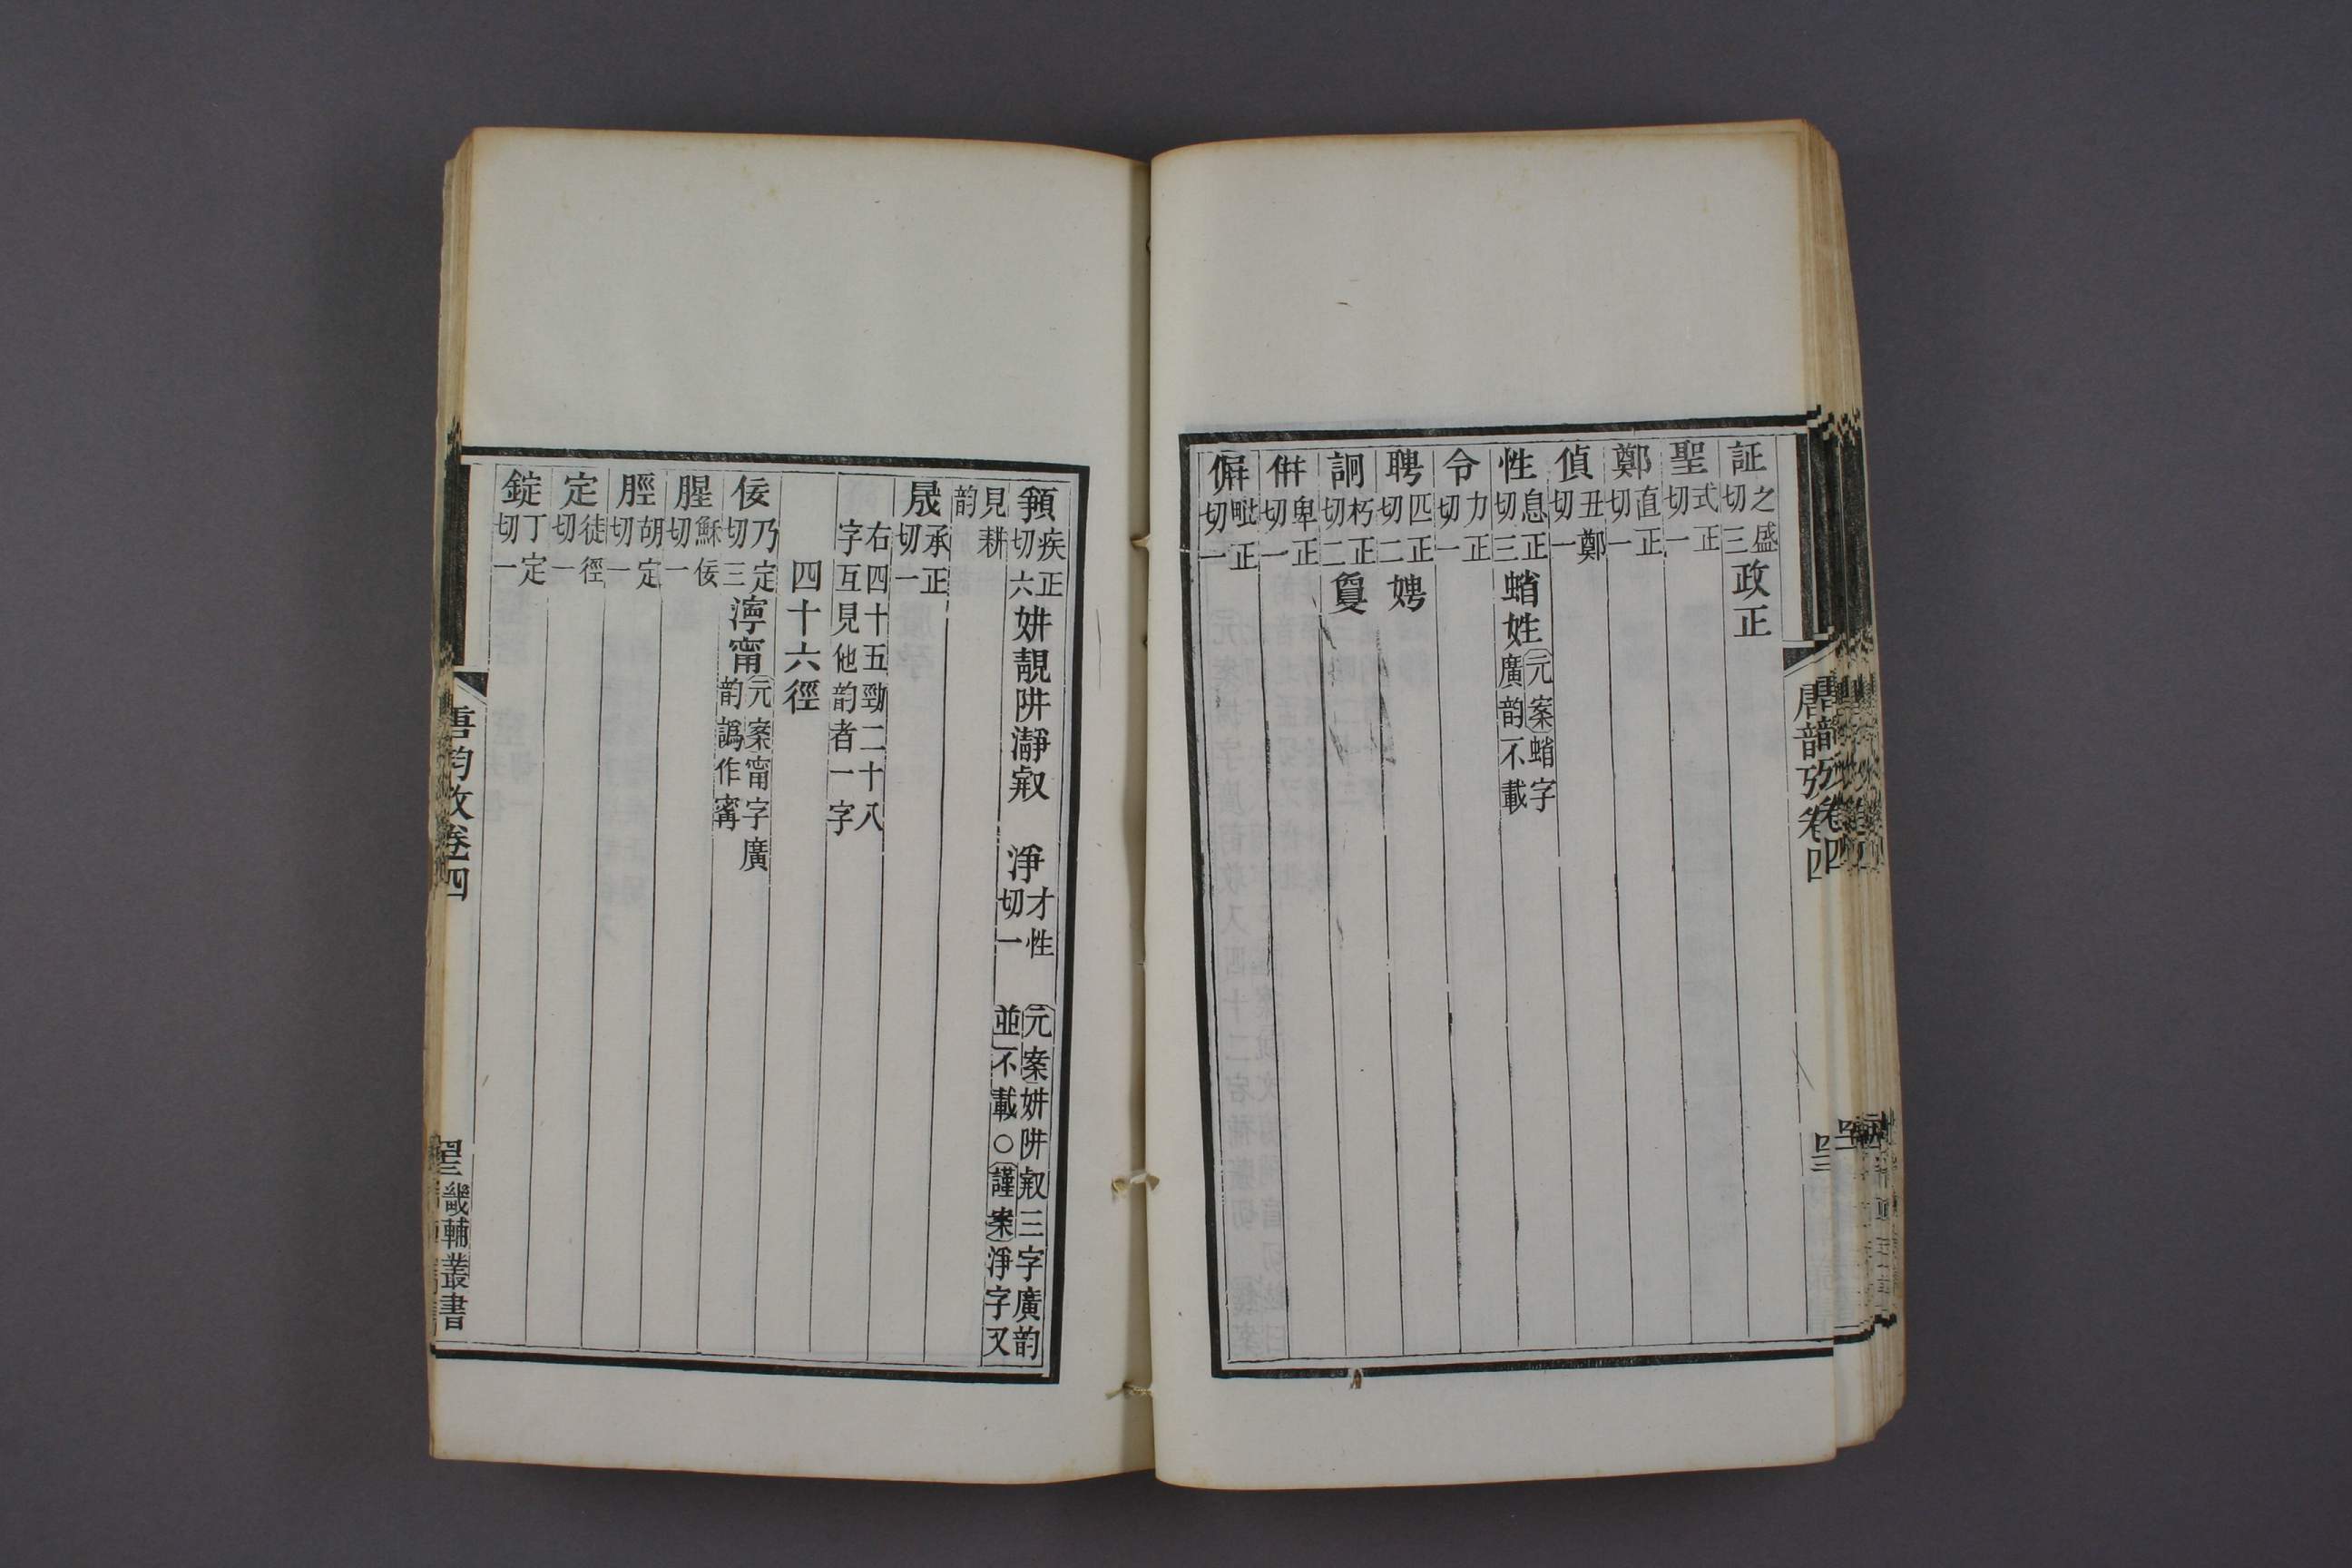 証之盛切三政正
聖式正切一
鄭直正切一
偵丑鄭切一
性息正切三蛸姓元案蛸字廣韵不載
令力正切一
聘匹正切二娉
詗朽正切二敻
倂卑正切一
偋毗正切一
唐韻攷卷四
䫆疾正切六妌靚阱瀞㝮 淨才性切一 元案妌阱㝮三字廣韵並不載○謹案淨字又
見耕韵
晟承正切一
右四十五勁二十八字互見他韵者一字
四十六徑
佞乃定切三濘甯元案甯字廣韵譌作寗
腥穌佞切一
脛胡定切一
定徒徑切一
錠丁定切一
唐韵攷卷四
畿輔叢書